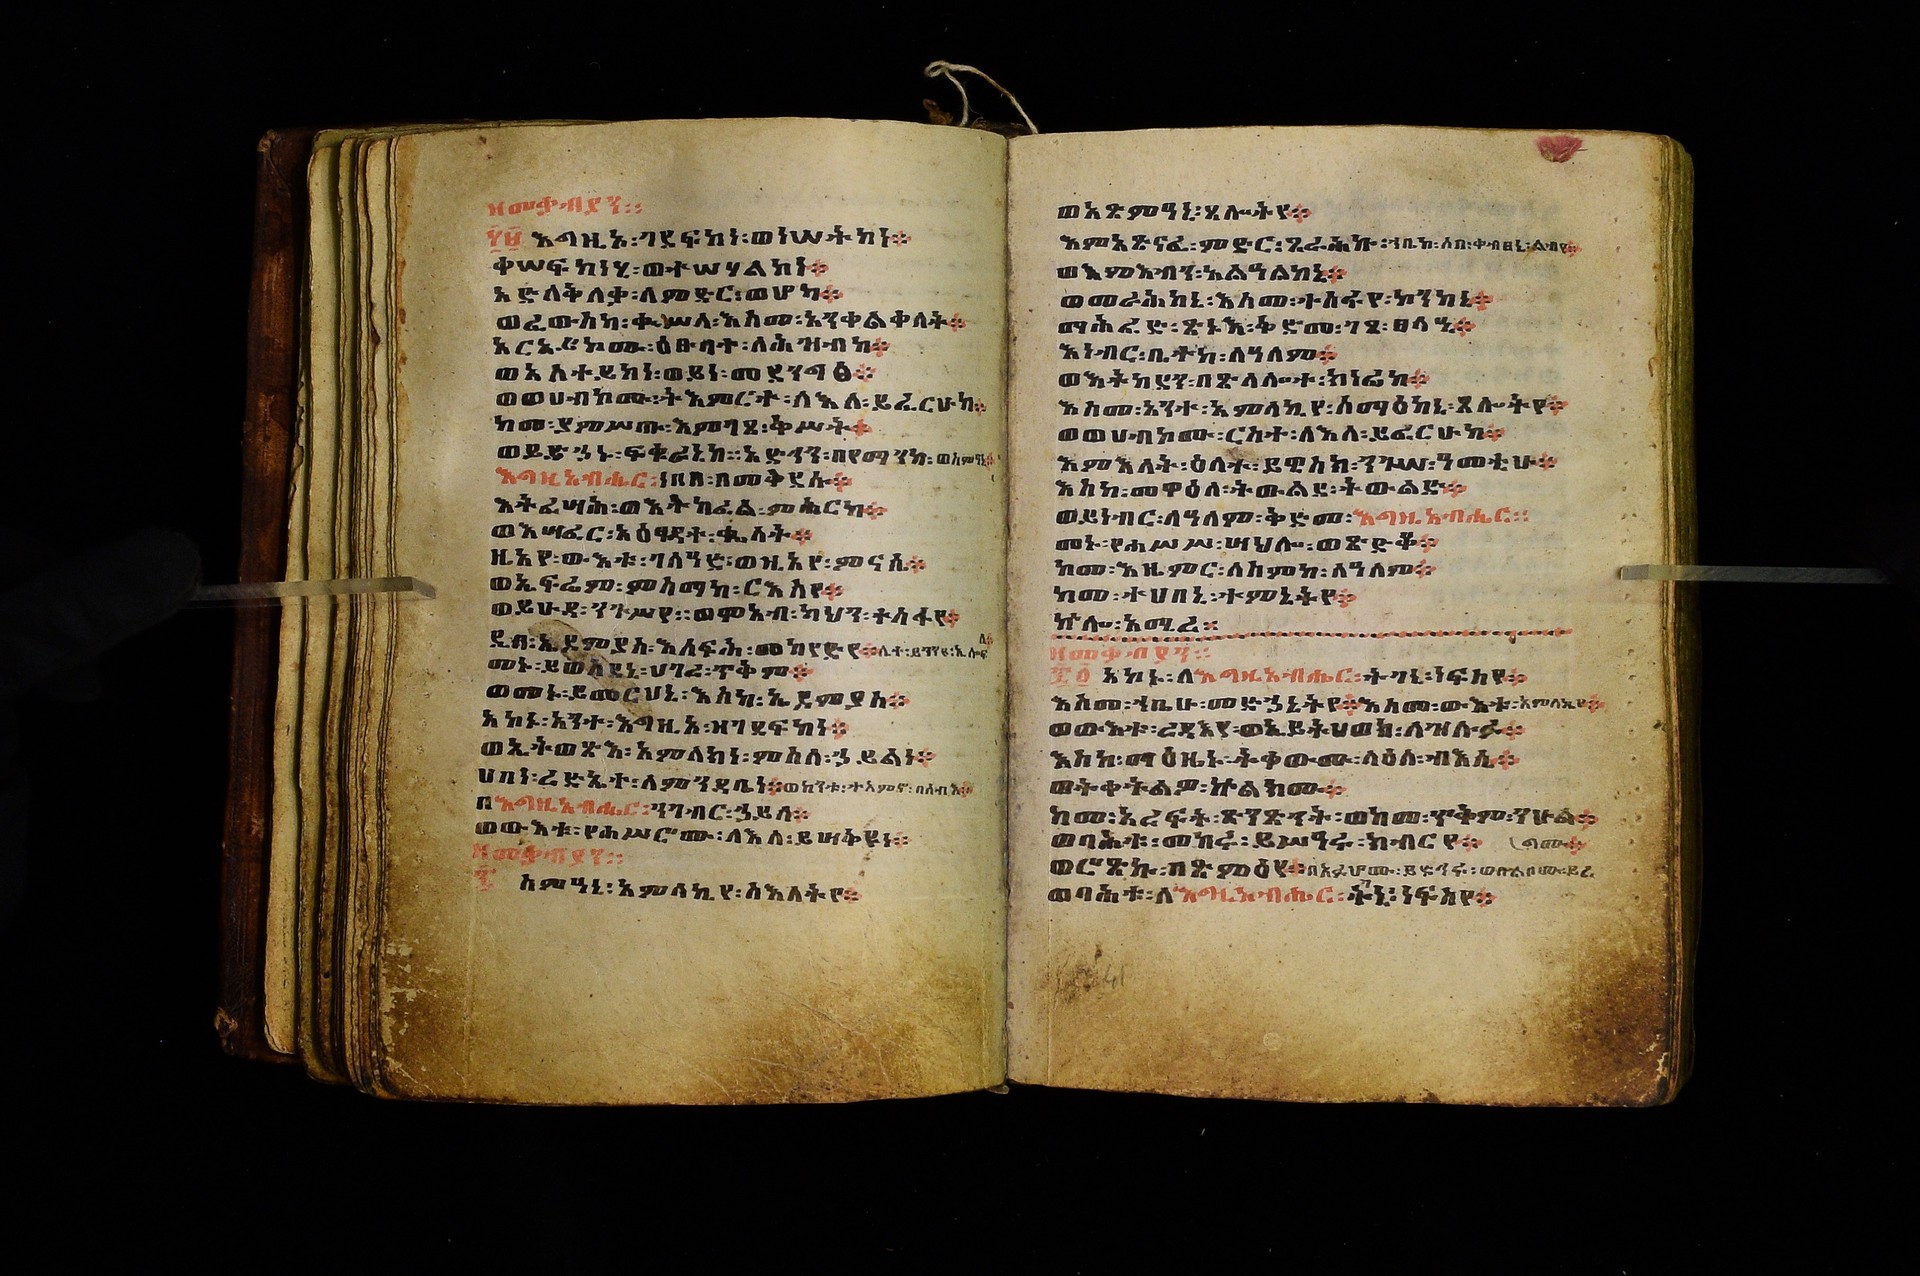 ዘመቃብያን።
፶፱ እግዚኦ፡ገደፍከነ፡ወነሠትከነ፨
ቀሠፍከነሂ፡ወተሠሃልከነ፨
አድለቅለቃ፡ለምድር፡ወሆካ፨
ወፈውስክ፡ቍሥላ፡እስመ፡አንቀልቀለት፨
አርአይኮሙ፡ዕፁባተ፡ለሕዝብከ፨
ወአስተይከነ፡ወይነ፡መደንግፅ፨
ወወሀብኮሙ፡ትእምርተ፡ለእለ፡ይፈርሁከ፨
ከመ፡ያምሥጡ፡እምገጸ፡ቅሥት፨
ወይድኃኑ፡ፍቁራኒከ።አድኅን፡በየማንከ፡ወስምዓኒ፨
እግዚአብሔር፡ነበበ፡በመቅደሱ፨
እትፌሣሕ፡ወእትካፈል፡ምሕርካ፨
ወእሣፈር፡አዕፃዳተ፡ቈላት፨
ዚአየ፡ውእቱ፡ገለዓድ፡ወዚአየ፡ምናሴ፨
ወኤፍሬም፡ምስማከ፡ርእስየ፨
ወይሁዳ፡ንጉሥየ።ወሞአብ፡ካህን፡ተስፋየ፨
ዲበ፡ኤዶምያስ፡እሰፍሕ፡መከየድየ፨ሊተ፡ይገንዩ፡ኢሎፍሊ
መኑ፡ይወስደኒ፡ሀገረ፡ጥቅም፨
ወመኑ፡ይመርሀኒ፡እስከ፡ኤዶምያስ፨
አኮኑ፡አንተ፡እግዚኦ፡ዘገደፍከነ፨
ወኢትወጽእ፡አምላክነ፡ምስለ፡ኃይልነ፨
ሀበነ፡ረድኤተ፡ለምንዳቤነ፨ወከንቱ፡ተአምኖ፡በሰብእ፨
በእግዚአብሔር፡ንገብር፡ኃይለ፨
ወውእቱ፡የሐሥሮሙ፡ለእለ፡ይሣቅዩነ፨
ዘመቃብያን።
፷ ስምዓኒ፡አምላኪየ፡ስእለትየ፨
ወአጽምዓኒ፡ሂሎትየ፨
እምአጽናፈ፡ምድር፡ጸራሕኩ፡ኀቤከ፡ሶበ፡ቀብፀኒ፡ልብየ፨
ወእምእብን፡አልዓልከኒ፨
ወመራሕከኒ፡እስመ፡ተስፋየ፡ኮንከኒ፨
ማሕፈድ፡ጽኑእ፡ቅድመ፡ገጸ፡ፀላዒ፨
እነብር፡ቤትከ፡ለዓለም፨
ወእትከደን፡በጽላሎተ፡ክነፊከ፨
እስመ፡አንተ፡አምላኪየ፡ሰማዕከኒ፡ጸሎትየ፨
ወወሀብኮሙ፡ርስተ፡ለእለ፡ይፈርሁከ፨
እምእለት፡ዕለተ፡ይዌስክ፡ንጉሥ፡ዓመቲሁ፨
እስከ፡መዋዕለ፡ትውልደ፡ትውልድ፨
ወይነብር፡ለዓለም፡ቅድመ፡እግዚአብሔር።
መኑ፡የሐሥሥ፡ሣህሎ፡ወጽድቆ፨
ከመ፡እዜምር፡ለስምከ፡ለዓለም፨
ከመ፡ተሀበኒ፡ተምኔትየ፨
ኵሎ፡አሚረ፨
ዘመቃብያን።
፷፩ አኮኑ፡ለእግዚአብሔር፡ትገኒ፡ነፍስየ፨
እስመ፡ኀቤሁ፡መድኃኒትየ፨እስመ፡ውእቱ፡አምላኪየ፨
ወውእቱ፡ረዳእየ፡ወኢይትሀወክ፡ለዝሉፉ፨
እስከ፡ማዕዜኑ፡ትቀውሙ፡ላዕለ፡ብእሲ፨
ወትቀትልዎ፡ኵልክሙ፨
ከመ፡አረፍት፡ጽንጽንት፡ወከመ፡ጥቅም፡ንሁል፨
ወባሕቱ፡መከሩ፡ይሥዓሩ፡ክብርየ፨
ወሮጽኩ፡በጽምዕየ፨በአፉሆሙ፡ይድኅሩ፡ወበልቦሙ፡ይረ
ግሙ፨
ወባሕቱ፡ለእግዚአብሔር፡ትገኒ፡ነፍስየ፨